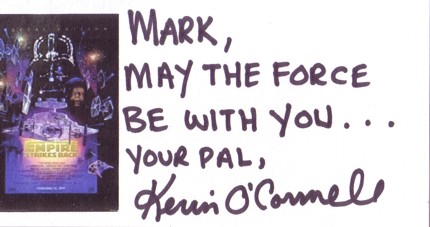 MARK,
MAY THE FORCE
BE WITH YOU...
YOUR PAL,
Kevin O'Connell
EMPIRE
STRIKES BACK